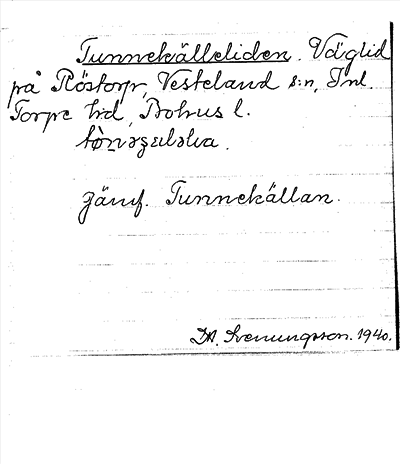 Tunnekälleliden. Väglid
på Röstorp, Vesteland s:n, Inl.
Torpe hd, Bohus l.
Jämf. Tunnekällan.
M. Svenungsson. 1940.